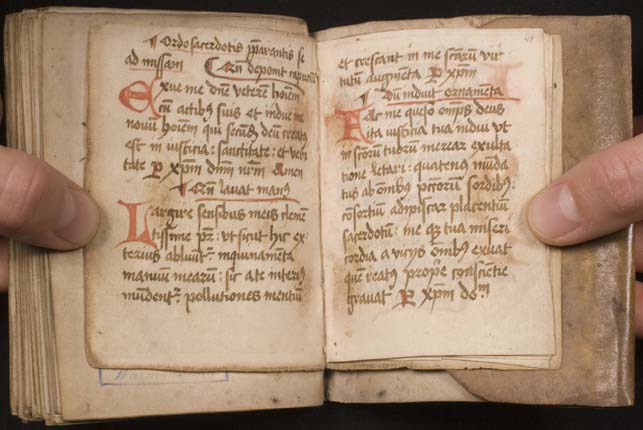 ¶ Ordo sacerdotis p̄parantis se
ad missam ¶ Cū deponit capuciū
Exue me dn̄e veterē hoīem
cū actibꝰ suis et indue me
novū hoīem qui secūdū deū creatꝰ
est in iusticia : sanctitate : et veri
tate P xp̄m dn̄m nr̄m Amen
¶ Cū lavat manꝰ
Largire sensibus meis clemē
tissime pr̄ : ut sicut hic ex
terius abluūt᷑ inquinamēta
manuum mearū : sic a te interiꝰ
mūdent᷑ pollutiones mentiū
et crescant in me sctārū vir
tutum augmēta P xp̄m
¶ Dum induit ornamēta
Fac me queso om̄ps deus
ita iusticia tua indui ut
in sctōrū tuorū merear exulta
tione letari : quatenus mūda
tus ab om̄ibꝰ pctōrum sordibꝰ
cōsortiū adipiscar placentium
sacerdotū : me qꝫ tua miseri
cordia a vicijs om̄ibꝰ exuat
quē reatꝰ prope consciētie
gravat P xp̄m do͞m